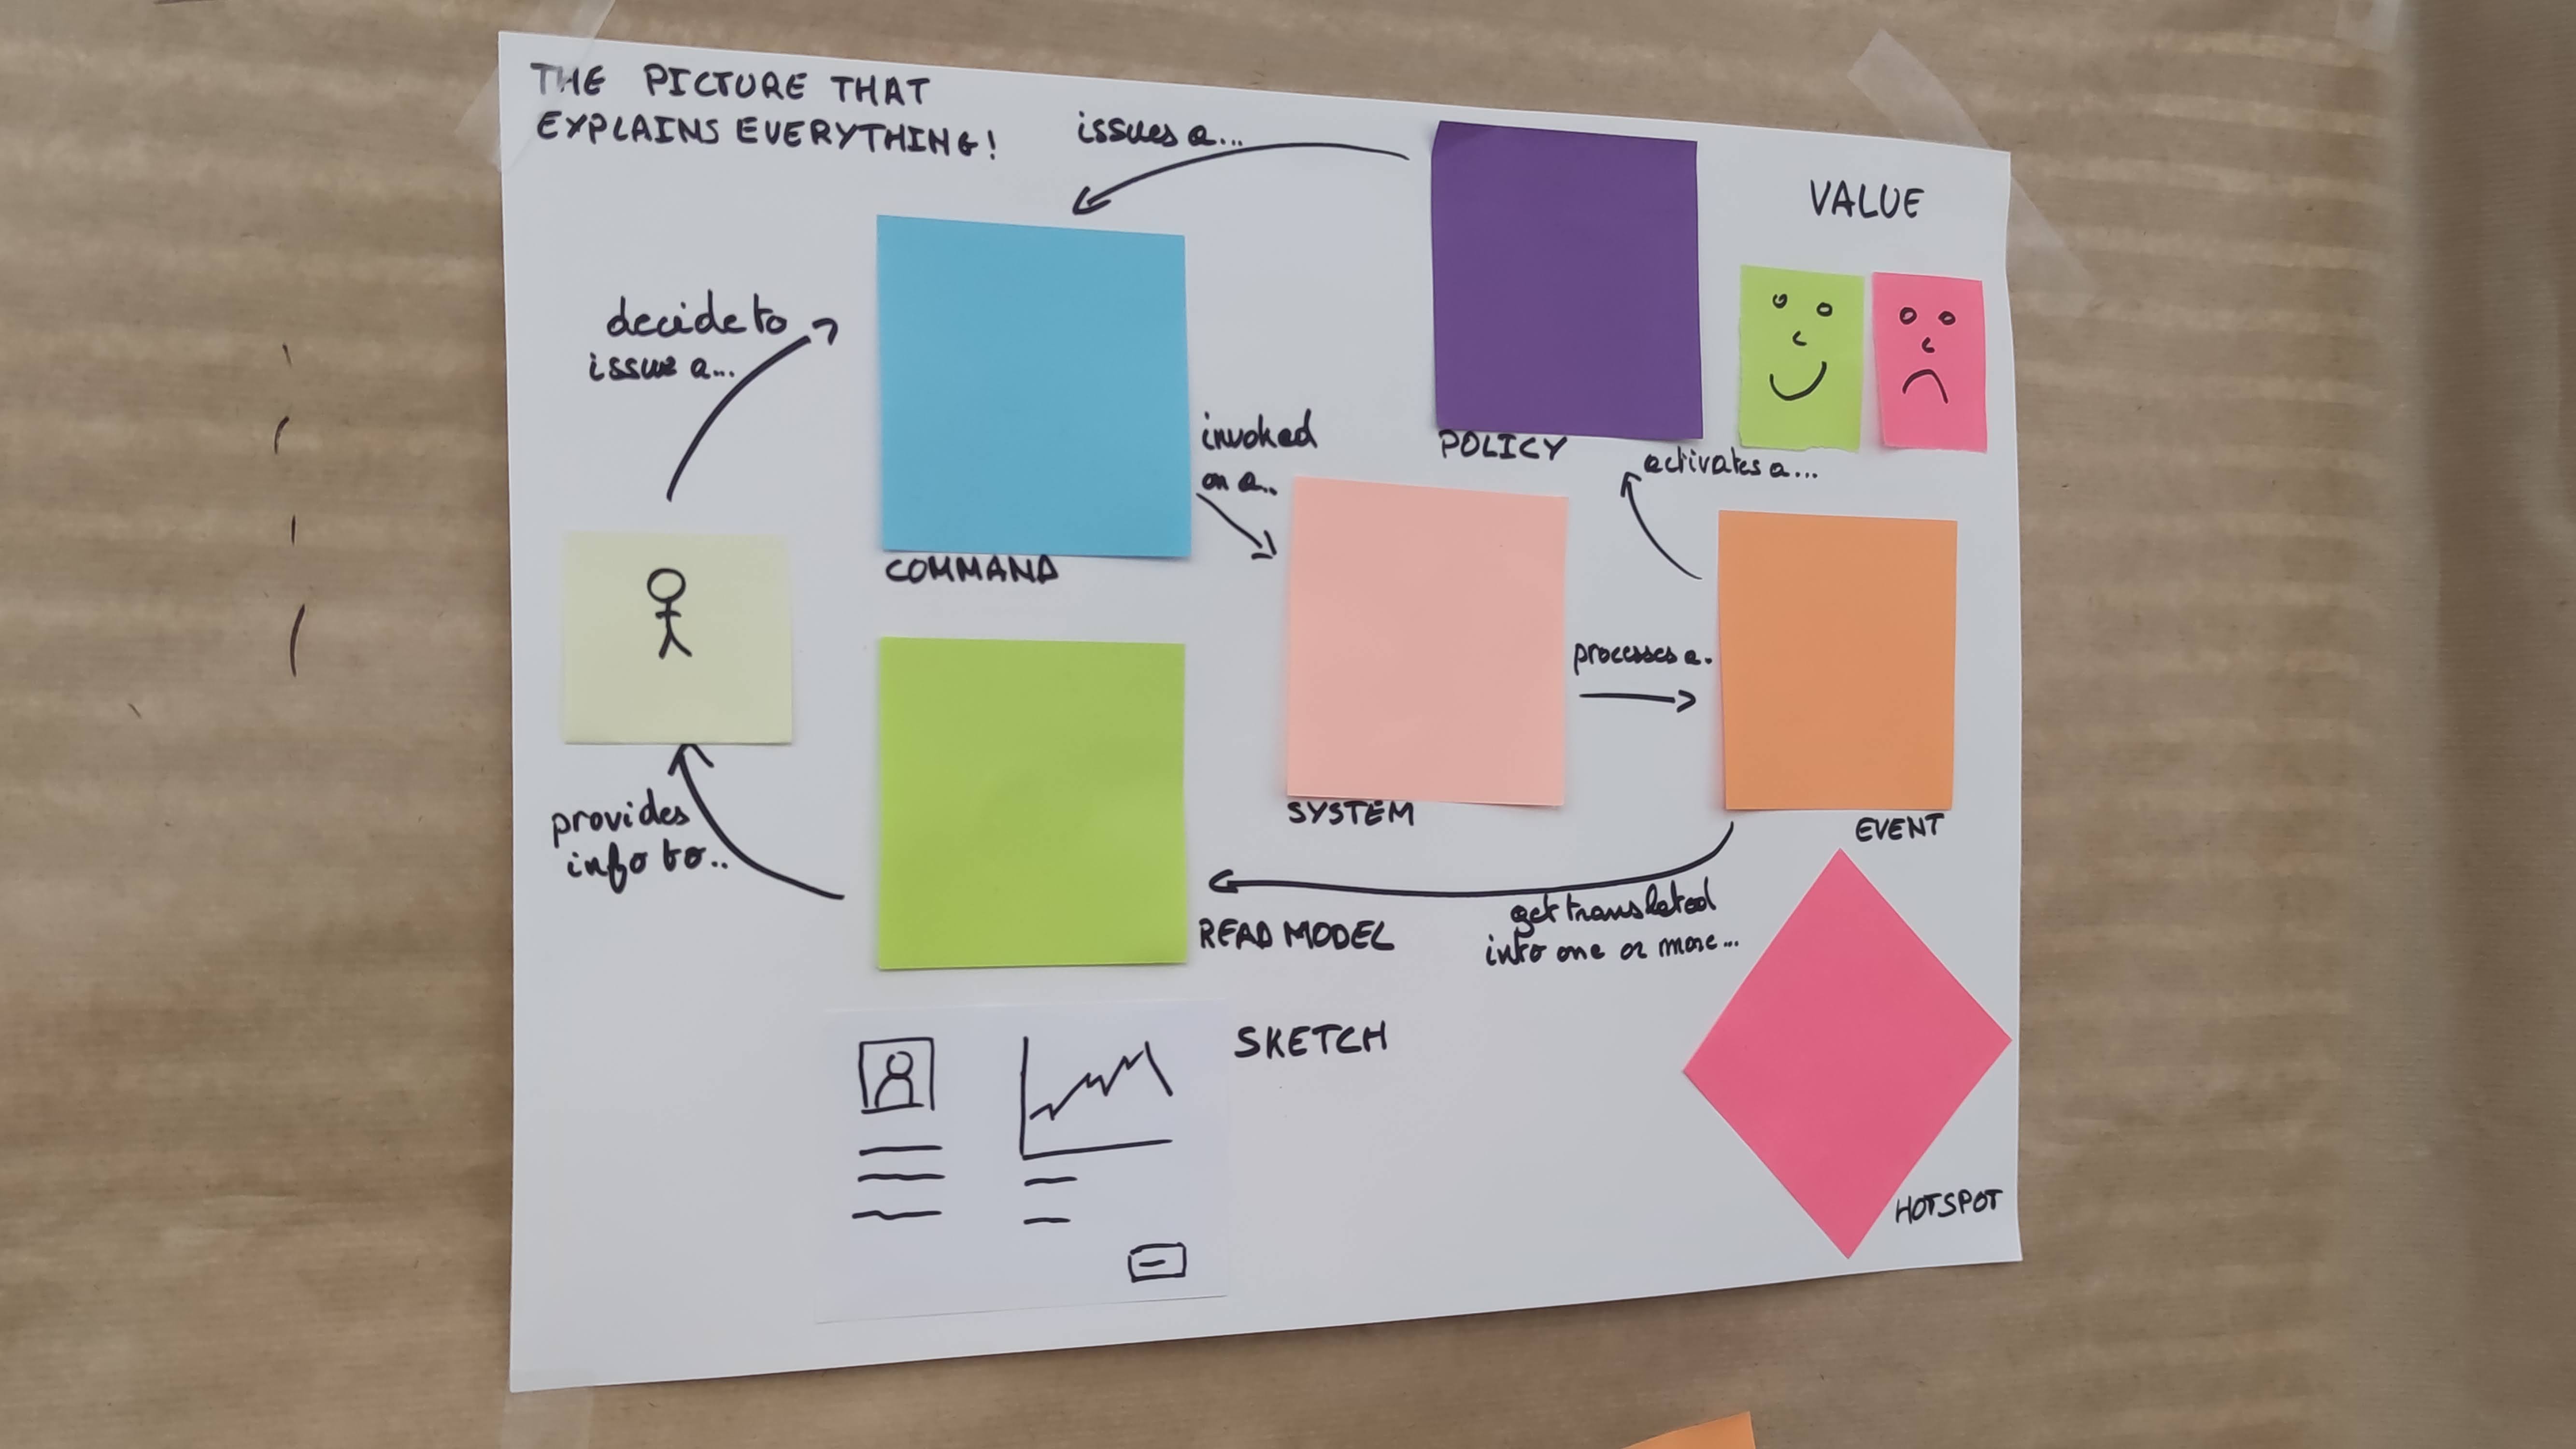 THE PICTURE THAT
EXPLAINS EVERYTHING!
issues a...
VALUE
decide to
issue a...
invoked
on a..
POLICY
activates a...
COMMAND
processes a.
provides
info to..
SYSTEM
EVENT
get translated
into one or more...
READ MODEL
SKETCH
HOTSPOT